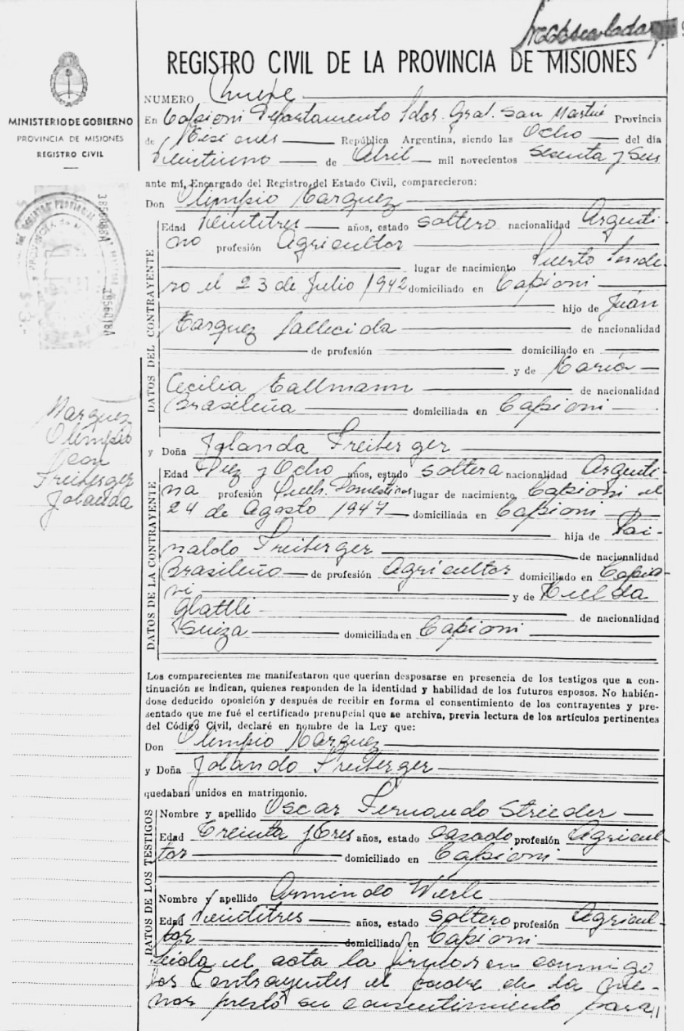 REGISTRO CIVIL DE LA PROVINCIA DE MISIONES
MINISTERIO DE GOBIERNO
PROVINCIA DE MISIONES
REGISTRO CIVIL
Marquez
Olimpio
con
Freiberger
Jolanda
NUMERO Nueve
En Capioni Departamento Ldor. Gral. San Martin Provincia
de Misiones República Argentina, siendo las Ocho del día
Veintiuno de Abril mil novecientos sesenta y seis
ante mí, Encargado del Registro del Estado Civil, comparecieron:
Don Olimpio Marquez
DATOS DEL CONTRAYENTE
Edad Veintitres años, estado soltero nacionalidad Argenti-
no profesión Agricultor
lugar de nacimiento Puerto
el 23 de Julio 1942 domiciliado en Capioni
hijo de Juán
Marquez fallecido de nacionalidad
de profesión domiciliado en
y de María
Cecilia Tallmann de nacionalidad
Brasileña domiciliada en Capioni
y Doña Jolanda Freiberger
DATOS DE LA CONTRAYENTE
Edad Diez y Ocho años, estado soltera nacionalidad Argenti-
na profesión lugar de nacimiento Capioni el
24 de Agosto 1947 domiciliada en Capioni
hija de Rai-
naldo Freiberger de nacionalidad
Brasileño de profesión Agricultor domiciliado en Capio-
ni y de
Glattli de nacionalidad
Suiza domiciliada en Capioni
Los comparecientes me manifestaron que querian desposarse en presencia de los testigos que a con-
tinuación se indican, quienes responden de la identidad y habilidad de los futuros esposos. No habién-
dose deducido oposición y después de recibir en forma el consentimiento de los contrayentes y pre-
sentado que me fué el certificado prenupcial que se archiva, previa lectura de los artículos pertinentes
del Código Civil, declaré en nombre de la Ley que:
Don Olimpio Marquez
y Doña Jolanda Freiberger
quedaban unidos en matrimonio.
DATOS DE LOS TESTIGOS
Nombre y apellido Oscar Fernando Strieder
Edad Treinta y tres años, estado casado profesión Agricul-
tor domiciliado en Capioni
Nombre y apellido Armindo Wierle
Edad Veintitres años, estado soltero profesión Agricul-
tor domiciliado en Capioni
Leida el acta la firmaron conmigo
los Contrayentes el padre de la me-
nor prestó su consentimiento para